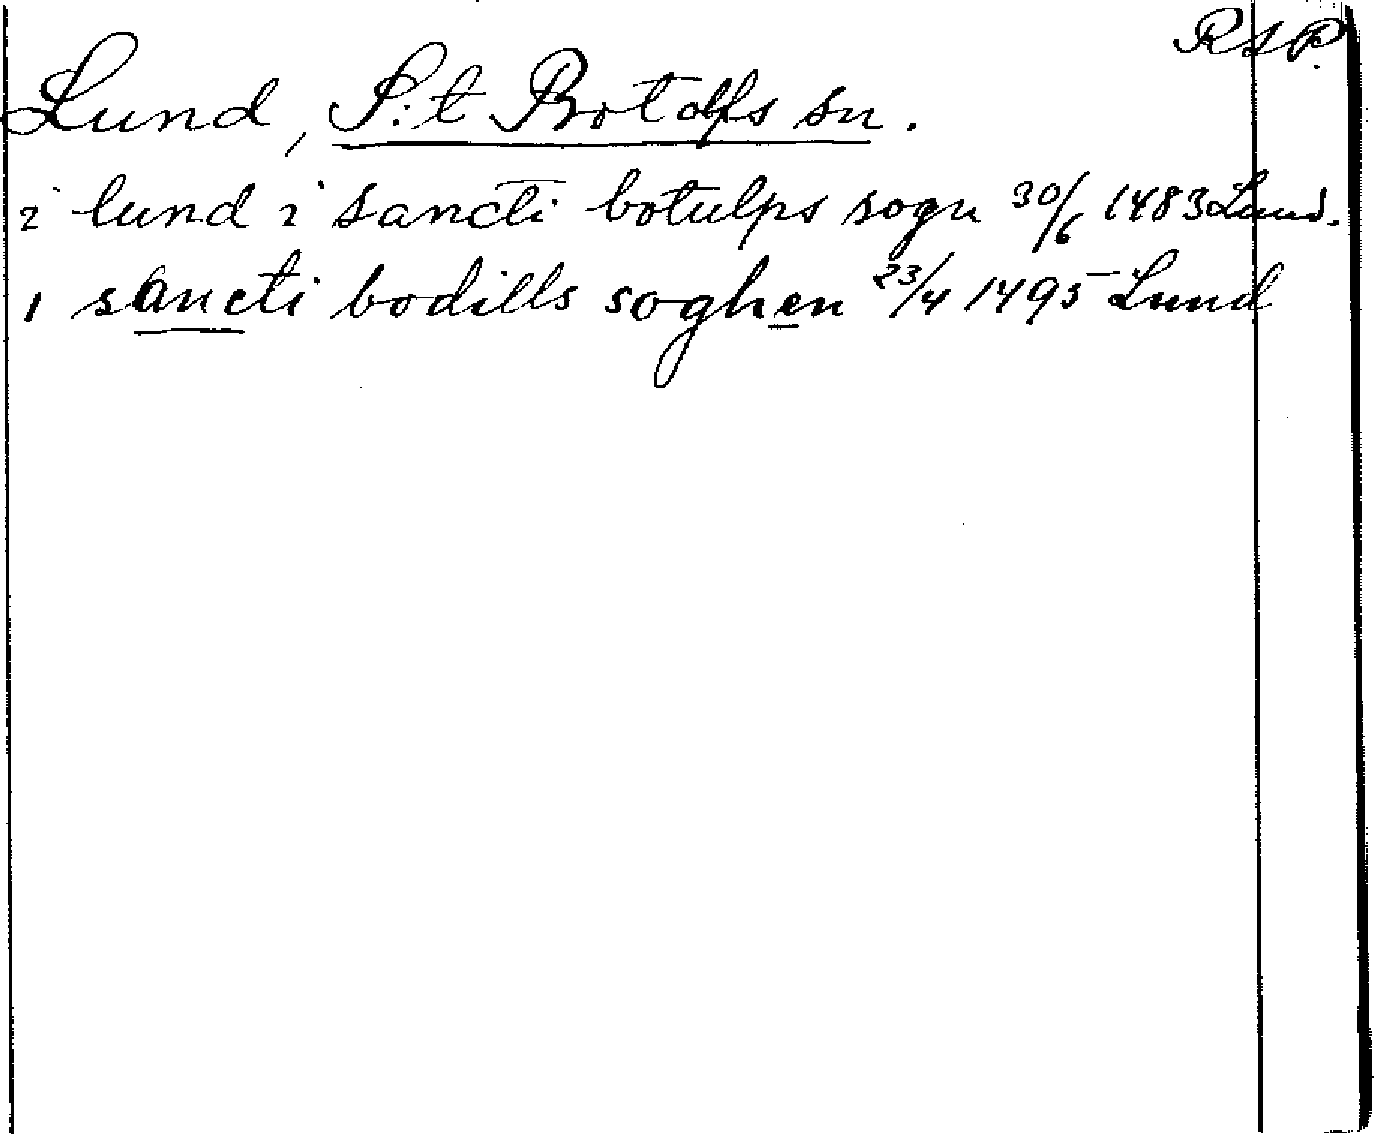 RSP.
Lund, S:t Botolfs sn.
i lund i sancti botulps sogn 30/6 1483 Lund.
i sancti bodills soghen 23/4 1495 Lund